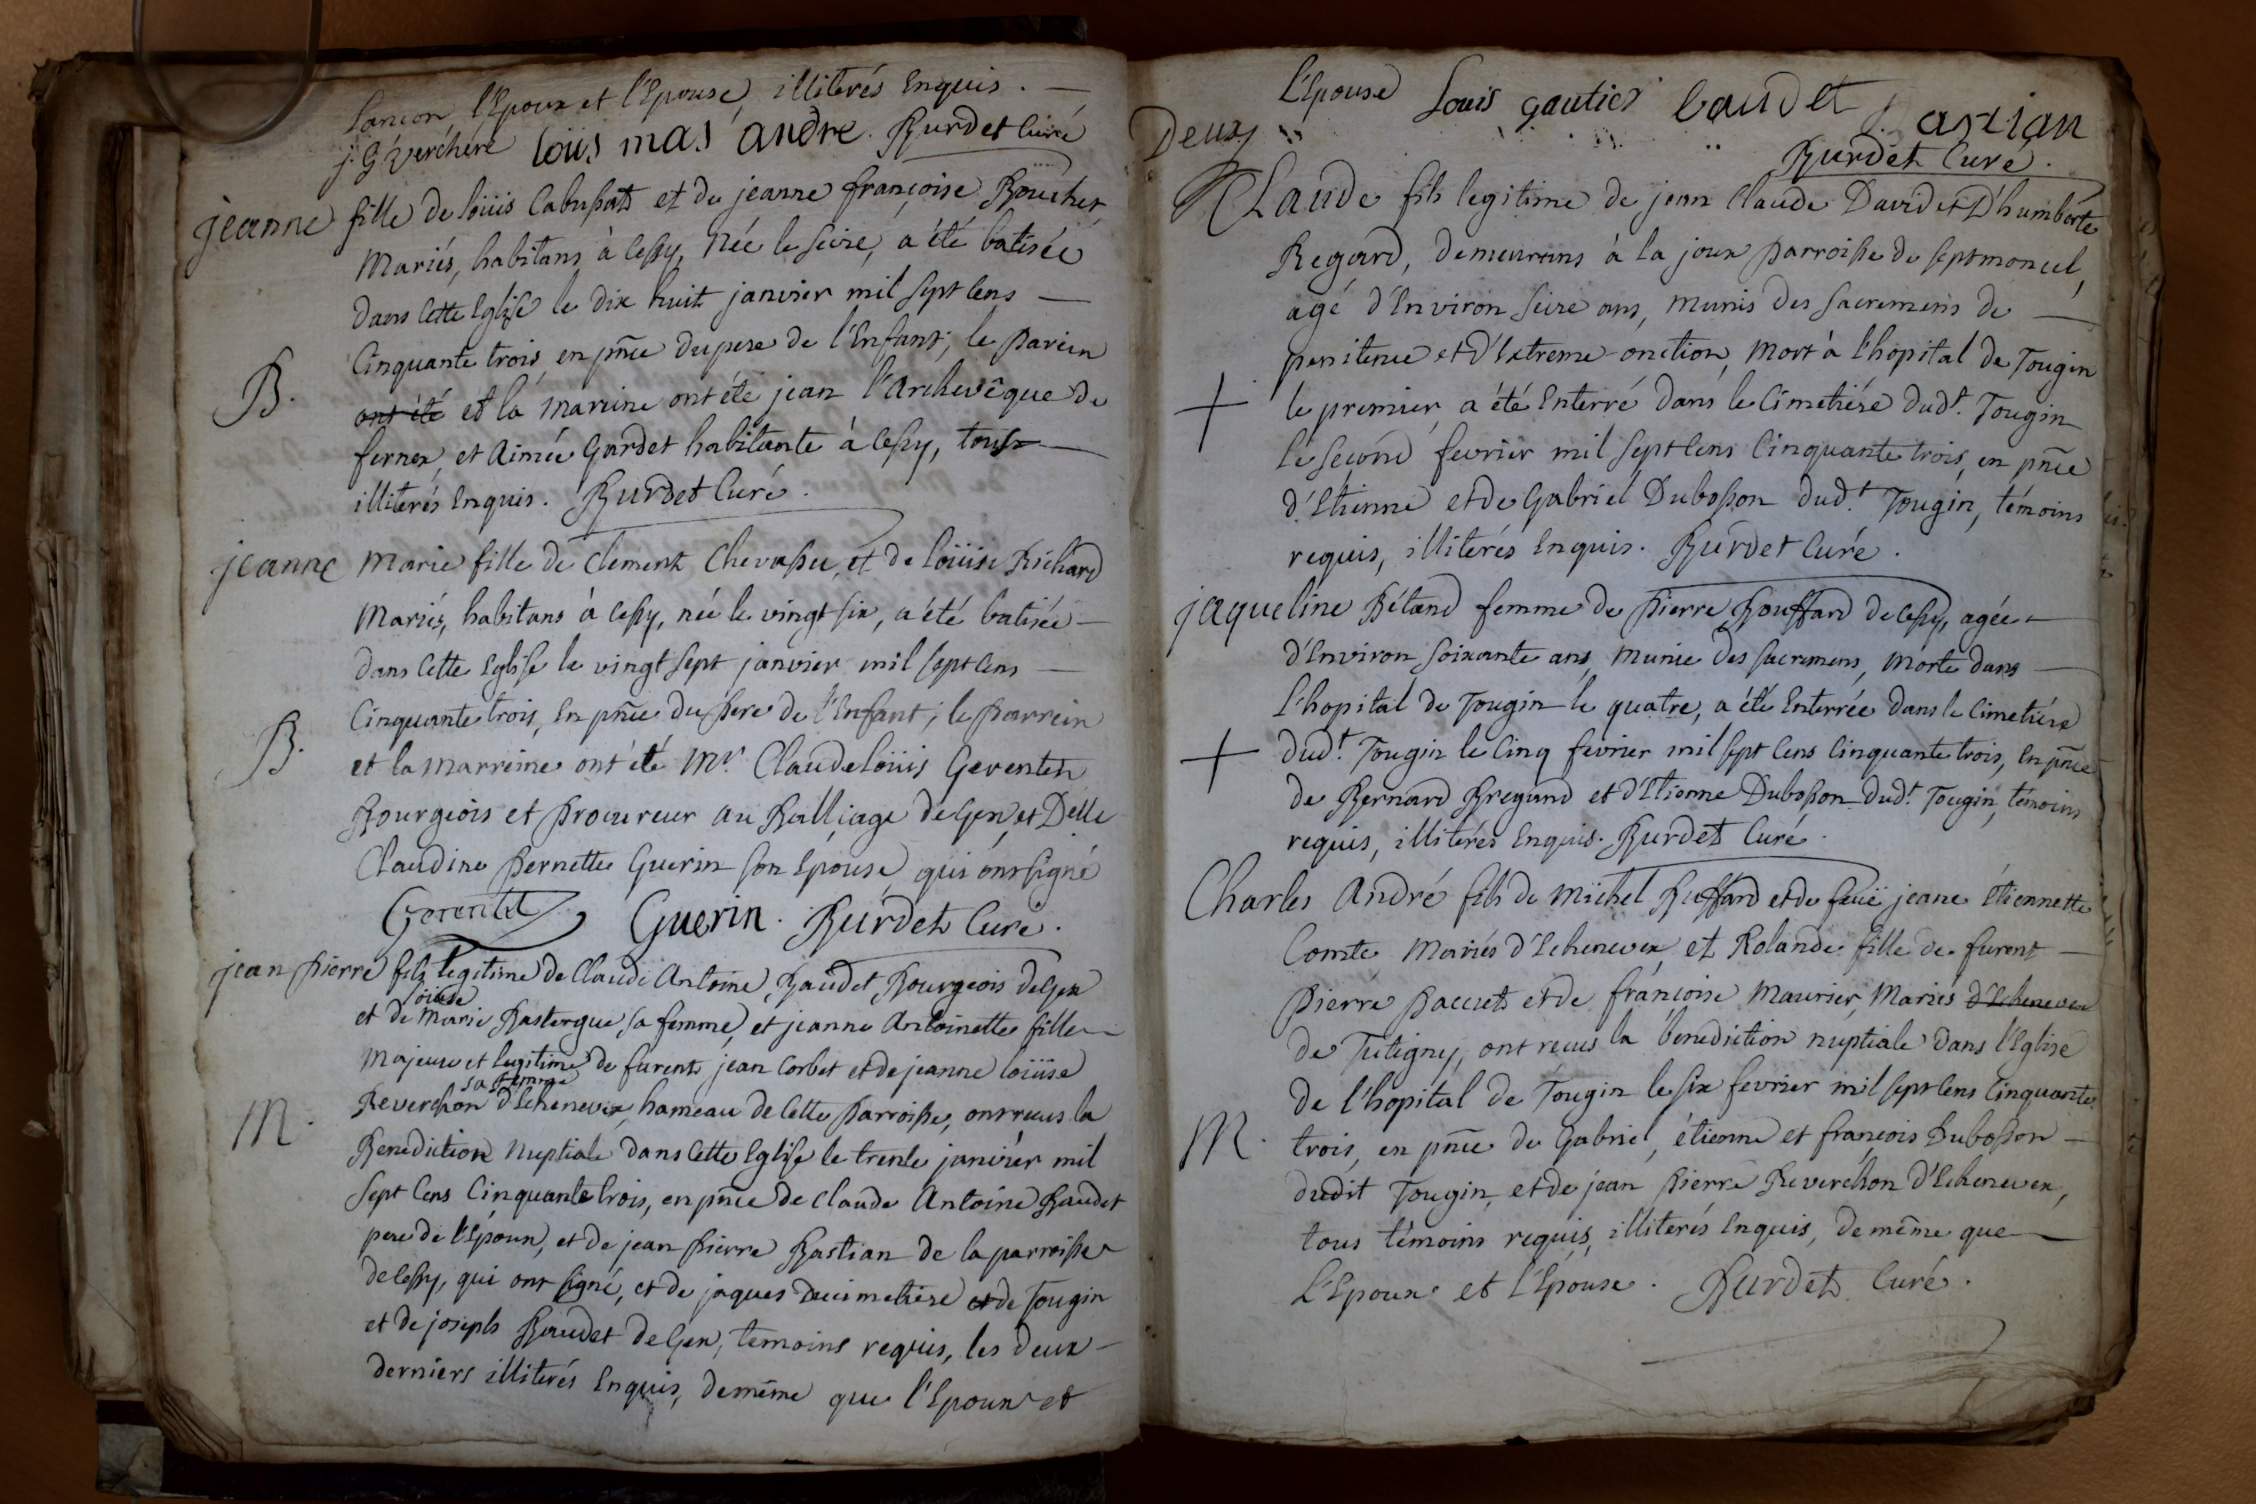 Lancon l'Epoux et l'Epouse, illiterés Enquis.
j. G. Verchére loüis mas andre. Burdet Curé
jeanne fille de loüis Cabussat et de jeanne françoise Bouchet
Mariés, habitans à Cessy, née le seize, a été batisée
dans cette Eglise le dix huit janvier mil sept Cens
Cinquante trois, en pñce du pere de l'Enfant; le parein
B. ont été et la mareine ont été jean l'Archevêque de
fernex, et Aimée Gardet habitante à Cessy, tous
illiterés Enquis. Burdet Curé.
jeanne Marie fille de Clement Chevassu, et de loüise Richard
Mariés, habitans à Cessy, née le vingt six, a été batisée
dans cette Eglise le vingt sept janvier mil sept Cens
Cinquante trois, en pñce du pere de l'Enfant; le parrein
B. et la marreine ont été Mr. Claude loüis Gerentet
Bourgeois et procureur au Balliage de Gex, et Delle
Claudine pernette Guerin son Epouse, qui ont signé
Gerentet Guerin. Burdet Curé.
jean pierre fils legitime de Claude Antoine Baudet Bourgeois de Gex
loüise
et de Marie Bastergue sa femme, et jeanne Antoinette fille
Majeure et legitime de furent jean Corbet et de jeanne loüise
sa femme
Reverchon d'Echenevex hameau de cette parroisse, ont reçus la
M. Benediction Nuptiale dans cette Eglise le trente janvier mil
sept Cens Cinquante trois, en pñce de Claude Antoine Baudet
pere de l'Epoux, et de jean pierre Bastian de la parroisse
de Cessy, qui ont signé, et de jaques Ducimetiere et de Tougin
et de joseph Baudet de Gex, temoins requis, les deux
derniers illiterés Enquis, de même que l'Epoux et
l'Epouse Louis gautier baudet astian
Deux Burdet Curé.
Claude fils legitime de jean Claude David et D'humberte
Regard, demeurans à la joux parroisse de septmoncel,
agé d'Environ seize ans, munis des sacremens de
penitence et d'Extreme-onction, mort à l'hopital de Tougin
+ le premier, a été Enterré dans le Cimetiére dudt. Tougin
le second fevrier mil sept Cens Cinquante trois, en pñce
d'Etienne et de Gabriel Dubosson dudt. Tougin, témoins
requis, illiterés Enquis. Burdet Curé.
jaqueline Bétand femme de pierre Bouffard de Cessy, agée
d'Environ soixante ans, munie des sacremens, morte dans
l'hopital de Tougin le quatre, a été Enterrée dans le Cimetiére
+ dudt. Tougin le Cinq fevrier mil sept Cens Cinquante trois, en pñce
de Bernard Bregand et d'Etienne Dubosson dudt. Tougin, témoins
requis, illiterés Enquis. Burdet Curé.
Charles André fils de Michel Buffard et de feüe jeane Etiennette
Comte Mariés d'Echenevex, et Rolande fille de furent
pierre paccut et de françoise Maurier, Mariés d'Echenevex
de Tutigny, ont reçus la benediction nuptiale dans l'Eglise
de l'hopital de Tougin le six fevrier mil sept Cens Cinquante
M. trois, en pñce de Gabriel, étienne et françois Dubosson
dudit Tougin, et de jean pierre Reverchon d'Echenevex,
tous témoins requis, illiterés Enquis, de même que
l'Epoux et l'Epouse. Burdet Curé.